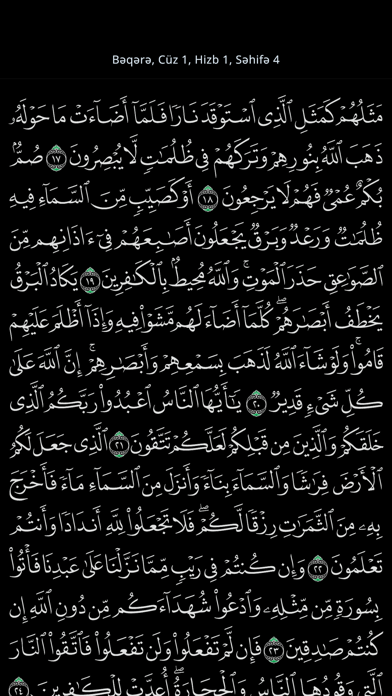 Bəqərə, Cüz 1, Hizb 1, Səhifə 4
مَثَلُهُمْ كَمَثَلِ ٱلَّذِى ٱسْتَوْقَدَ نَارًا فَلَمَّآ أَضَآءَتْ مَا حَوْلَهُۥ
ذَهَبَ ٱللَّهُ بِنُورِهِمْ وَتَرَكَهُمْ فِى ظُلُمَٰتٍ لَّا يُبْصِرُونَ ١٧ صُمٌّۢ
بُكْمٌ عُمْىٌ فَهُمْ لَا يَرْجِعُونَ ١٨ أَوْ كَصَيِّبٍ مِّنَ ٱلسَّمَآءِ فِيهِ
ظُلُمَٰتٌ وَرَعْدٌ وَبَرْقٌ يَجْعَلُونَ أَصَٰبِعَهُمْ فِىٓ ءَاذَانِهِم مِّنَ
ٱلصَّوَٰعِقِ حَذَرَ ٱلْمَوْتِ ۚ وَٱللَّهُ مُحِيطٌۢ بِٱلْكَٰفِرِينَ ١٩ يَكَادُ ٱلْبَرْقُ
يَخْطَفُ أَبْصَٰرَهُمْ ۖ كُلَّمَآ أَضَآءَ لَهُم مَّشَوْا۟ فِيهِ وَإِذَآ أَظْلَمَ عَلَيْهِمْ
قَامُوا۟ ۚ وَلَوْ شَآءَ ٱللَّهُ لَذَهَبَ بِسَمْعِهِمْ وَأَبْصَٰرِهِمْ ۚ إِنَّ ٱللَّهَ عَلَىٰ
كُلِّ شَىْءٍ قَدِيرٌ ٢٠ يَٰٓأَيُّهَا ٱلنَّاسُ ٱعْبُدُوا۟ رَبَّكُمُ ٱلَّذِى
خَلَقَكُمْ وَٱلَّذِينَ مِن قَبْلِكُمْ لَعَلَّكُمْ تَتَّقُونَ ٢١ ٱلَّذِى جَعَلَ لَكُمُ
ٱلْأَرْضَ فِرَٰشًا وَٱلسَّمَآءَ بِنَآءً وَأَنزَلَ مِنَ ٱلسَّمَآءِ مَآءً فَأَخْرَجَ
بِهِۦ مِنَ ٱلثَّمَرَٰتِ رِزْقًا لَّكُمْ ۖ فَلَا تَجْعَلُوا۟ لِلَّهِ أَندَادًا وَأَنتُمْ
تَعْلَمُونَ ٢٢ وَإِن كُنتُمْ فِى رَيْبٍ مِّمَّا نَزَّلْنَا عَلَىٰ عَبْدِنَا فَأْتُوا۟
بِسُورَةٍ مِّن مِّثْلِهِۦ وَٱدْعُوا۟ شُهَدَآءَكُم مِّن دُونِ ٱللَّهِ إِن
كُنتُمْ صَٰدِقِينَ ٢٣ فَإِن لَّمْ تَفْعَلُوا۟ وَلَن تَفْعَلُوا۟ فَٱتَّقُوا۟ ٱلنَّارَ
ٱلَّتِى وَقُودُهَا ٱلنَّاسُ وَٱلْحِجَارَةُ ۖ أُعِدَّتْ لِلْكَٰفِرِينَ ٢٤